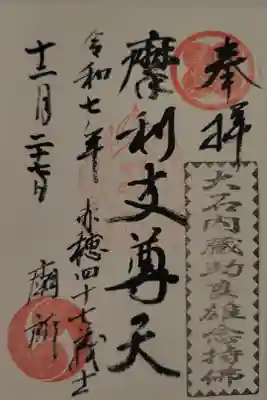 奉拝
大石内蔵助良雄念持佛
摩利支尊天
赤穂四十七義士
廟所
令和七年
十二月二十七日